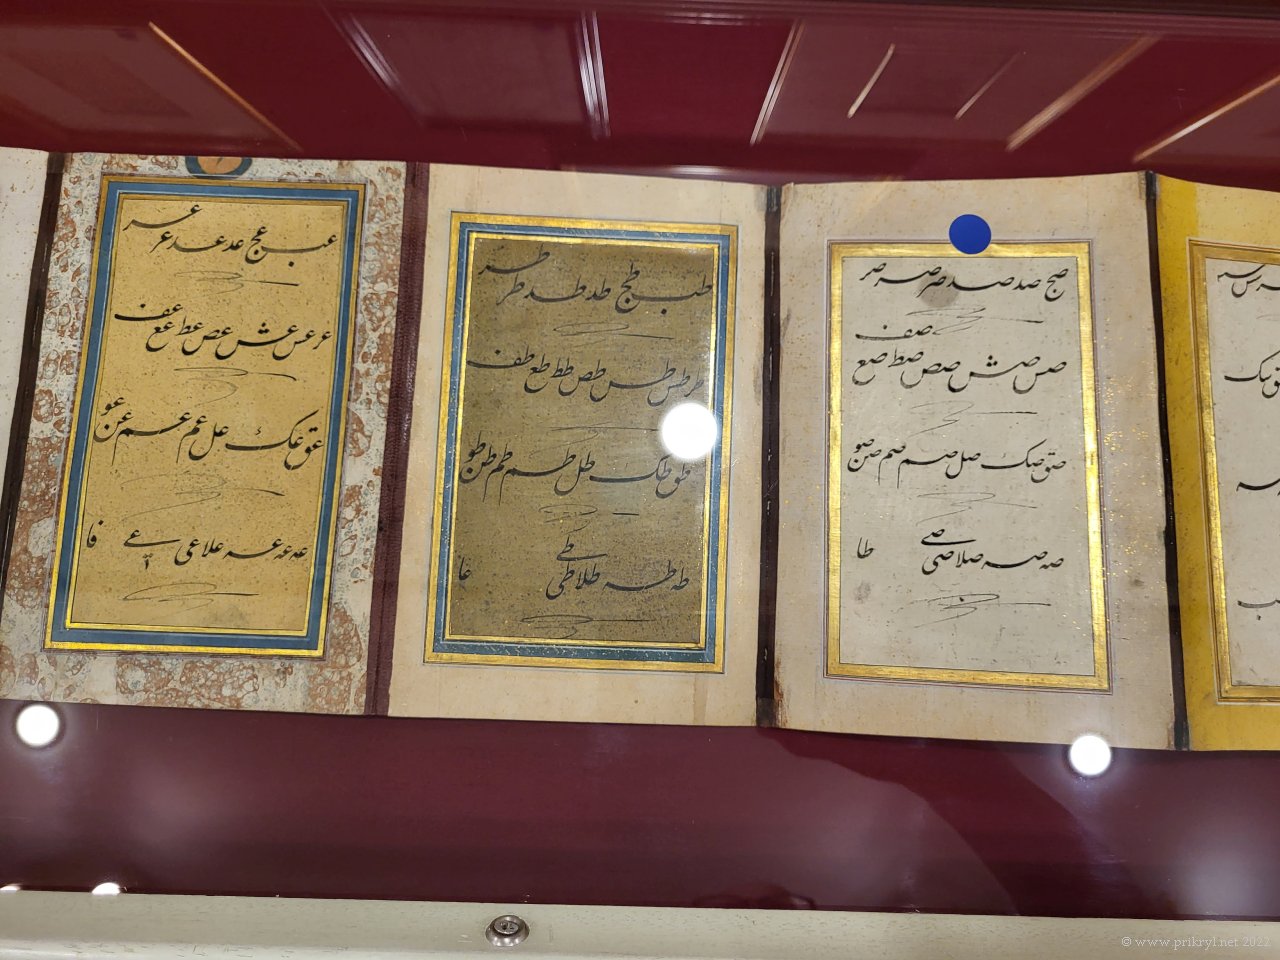 صج صد صد صر صر صر
صس صش صص صط صع صف
صق صك صل صم صم صن صو
صه صه صلا صى صے
طا
طب طج طد طد طر طر
طر طس طس طص طط طع طف
طق طك طل طم طم طن طو
طه طه طلا طى طے
عا
عب عج عد عد عر عر
عر عس عش عص عط عع عف
عق عك عل عم عم عن عو
عه عه عه علا عى عے
فا
© www.prikryl.net 2022